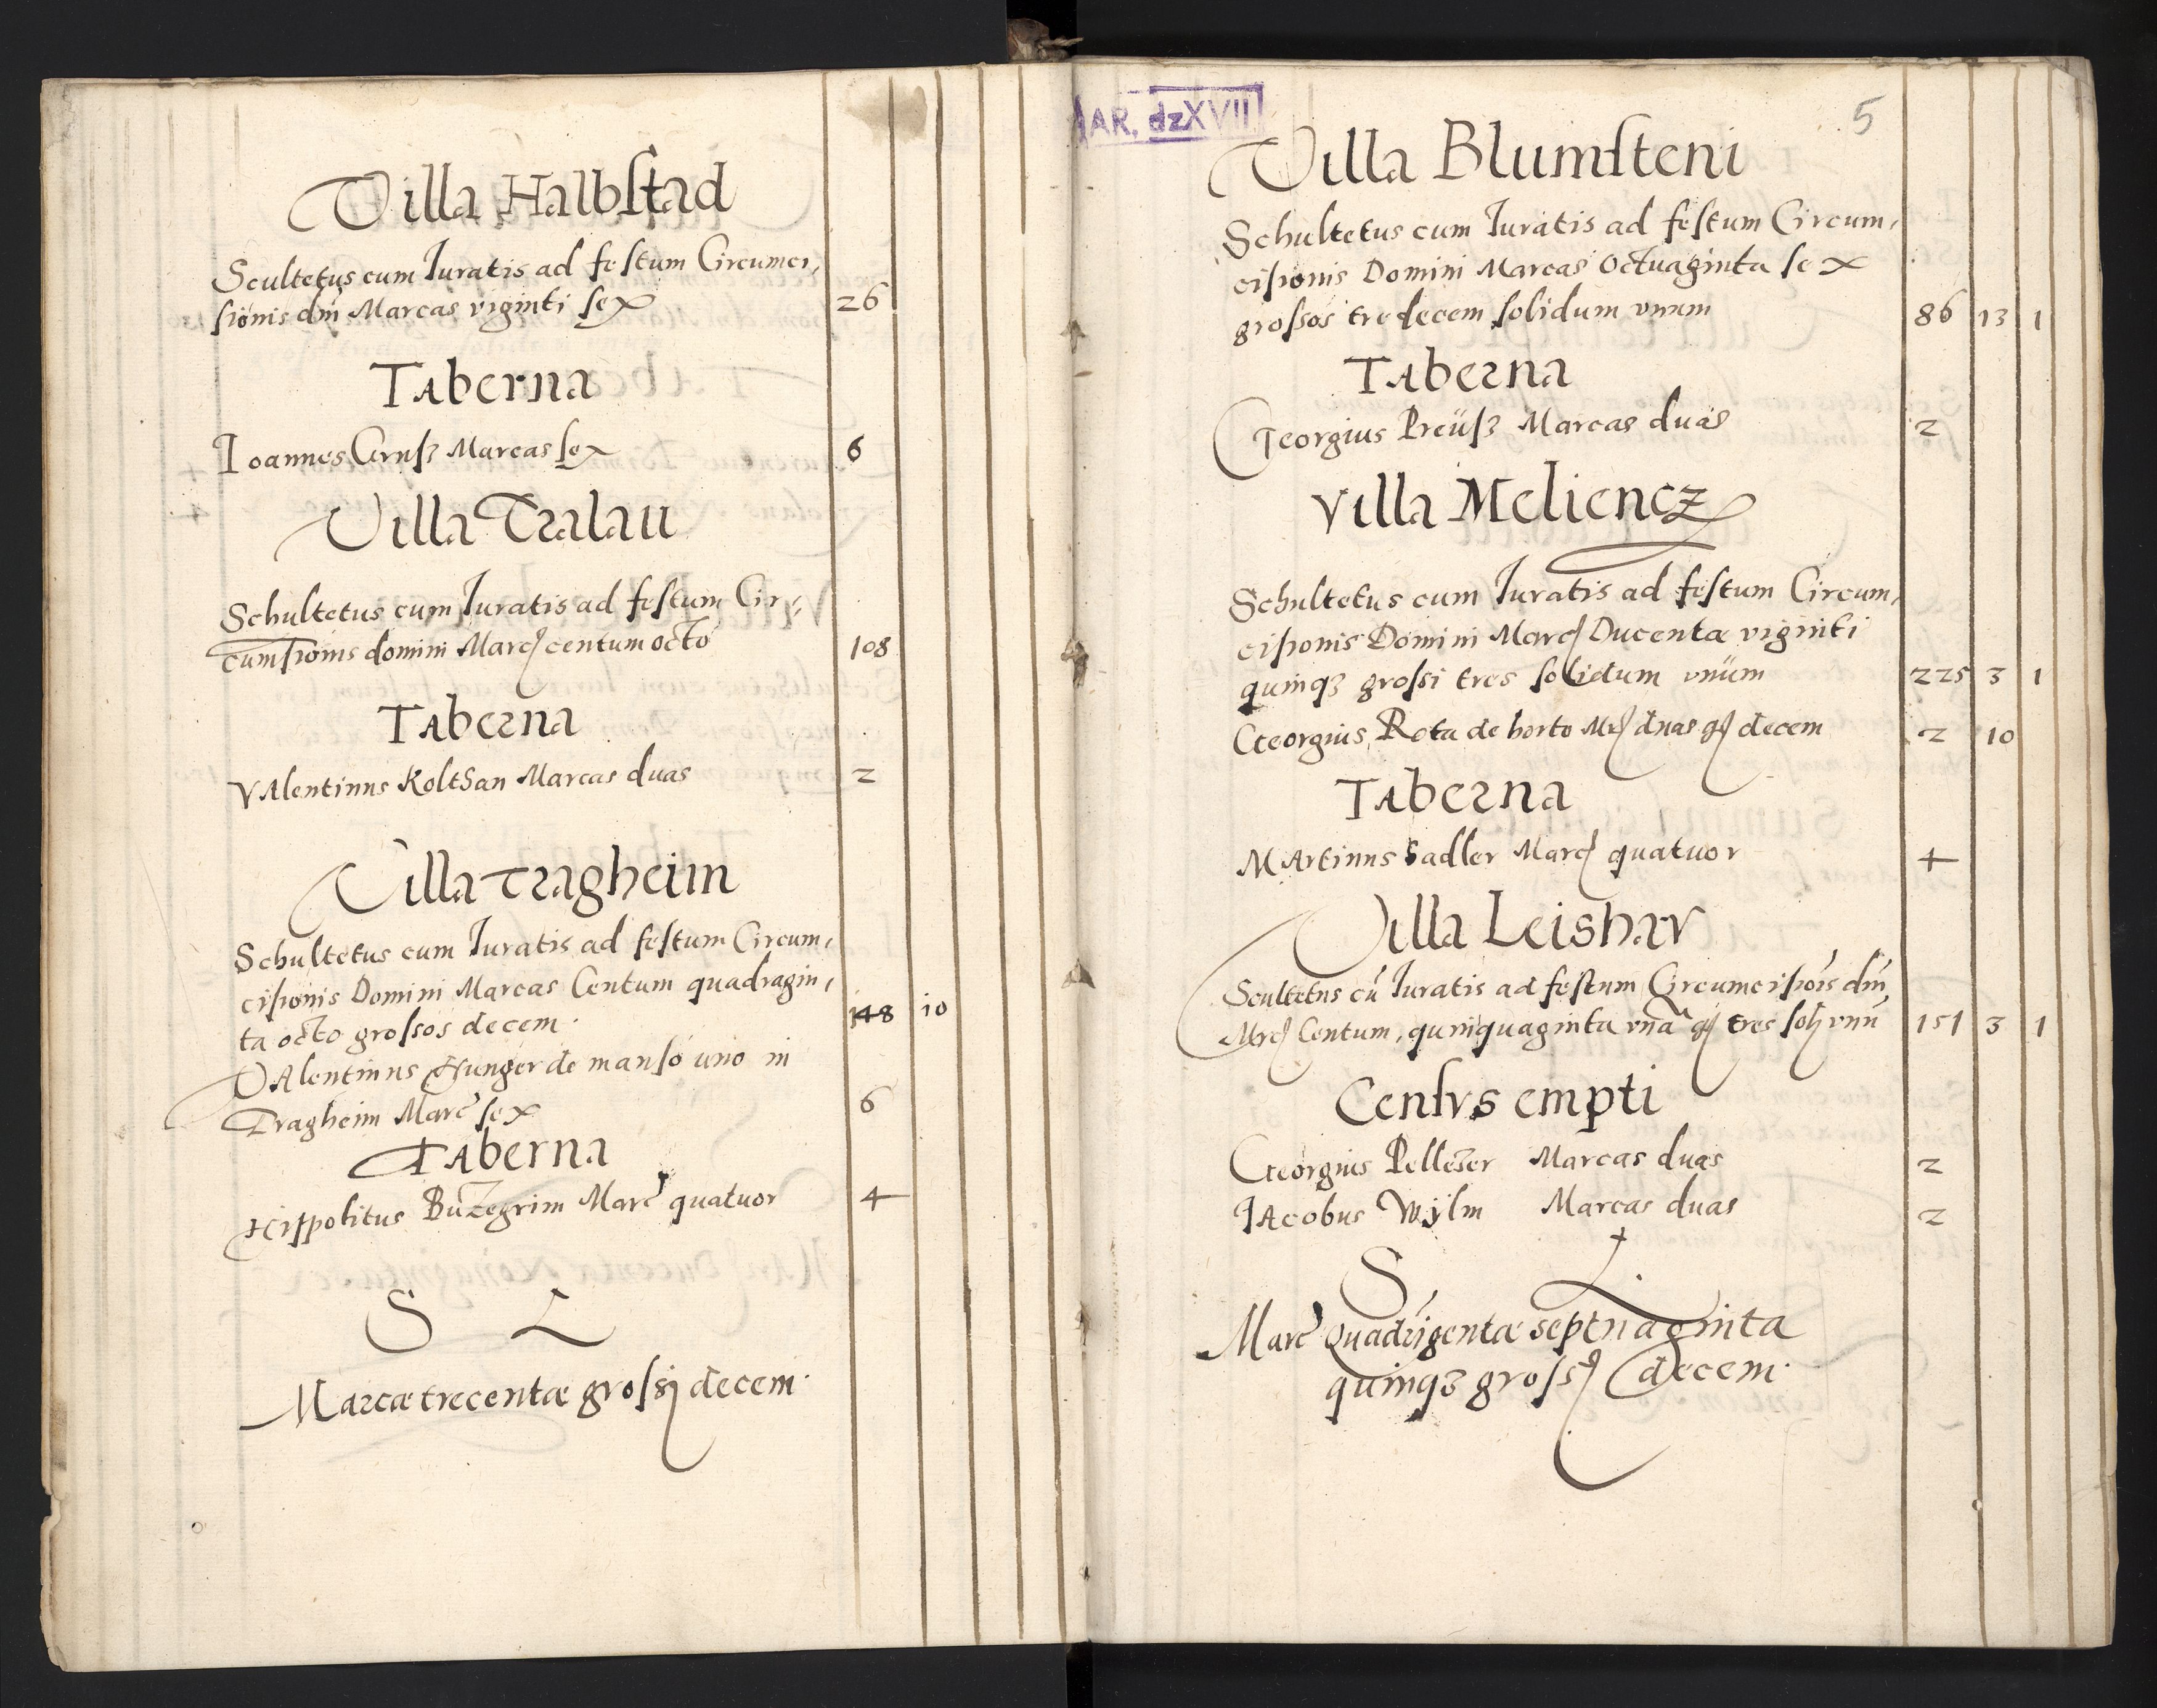 Villa Halbstad
Scultetus cum Iuratis ad festum Circumci,
sionis dni Marcas viginti sex 26
Taberna
Ioannes Marcas sex 6
Villa Tralau
Schultetus cum Iuratis ad festum Cir,
cumsionis domini Marc centum octo 108
Taberna
VAlentinus Koltsan Marcas duas 2
Villa Tragheim
Schultetus cum Iuratis ad festum Circum,
cisionis Domini Marcas Centum quadragin,
ta octo grossos decem. 148 10
VAlentinus Hunger de manso uno in
Tragheim Marc sex 6
Taberna
Hippolitus Marc quatuor 4
S L
Marcæ trecentæ grossi decem.
AR. dzXVII
5
Villa Blumsteni
Schultetus cum Iuratis ad festum Circum,
cisionis Domini Marcas Octuaginta sex
grossos tredecem solidum vnum 86 13 1
Taberna
Georgius Preüss Marcas duas 2
Villa Meliencz
Schultetus cum Iuratis ad festum Circum,
cisionis Domini Marc Ducentæ viginti
quinq3 grossi tres solidum vnum 225 3 1
Georgius Reta de horto Mr duas g decem 2 10
Taberna
MArtinus Sadler Marc quatuor 4
Villa Leishav
Scultetus cu Iuratis ad festum Circumcisiois dni
Mrc Centum, quinquaginta vna g tres sol vnu 151 3 1
Censvs empti
Georgius Marcas duas 2
IAcobus Wylm Marcas duas 2
S L.
Marc Quadrigentæ septuaginta
quinq3 gross decem.